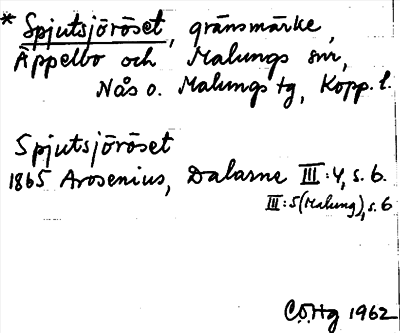 * Spjutsjöröset, gränsmärke,
Äppelbo och Malungs snr,
Nås o. Malungs tg, Kopp. l.
Spjutsjöröset
1865 Arosenius, Dalarne III:4, s. 6.
III:5 (Malung), s. 6
C.Ö.Hg 1962